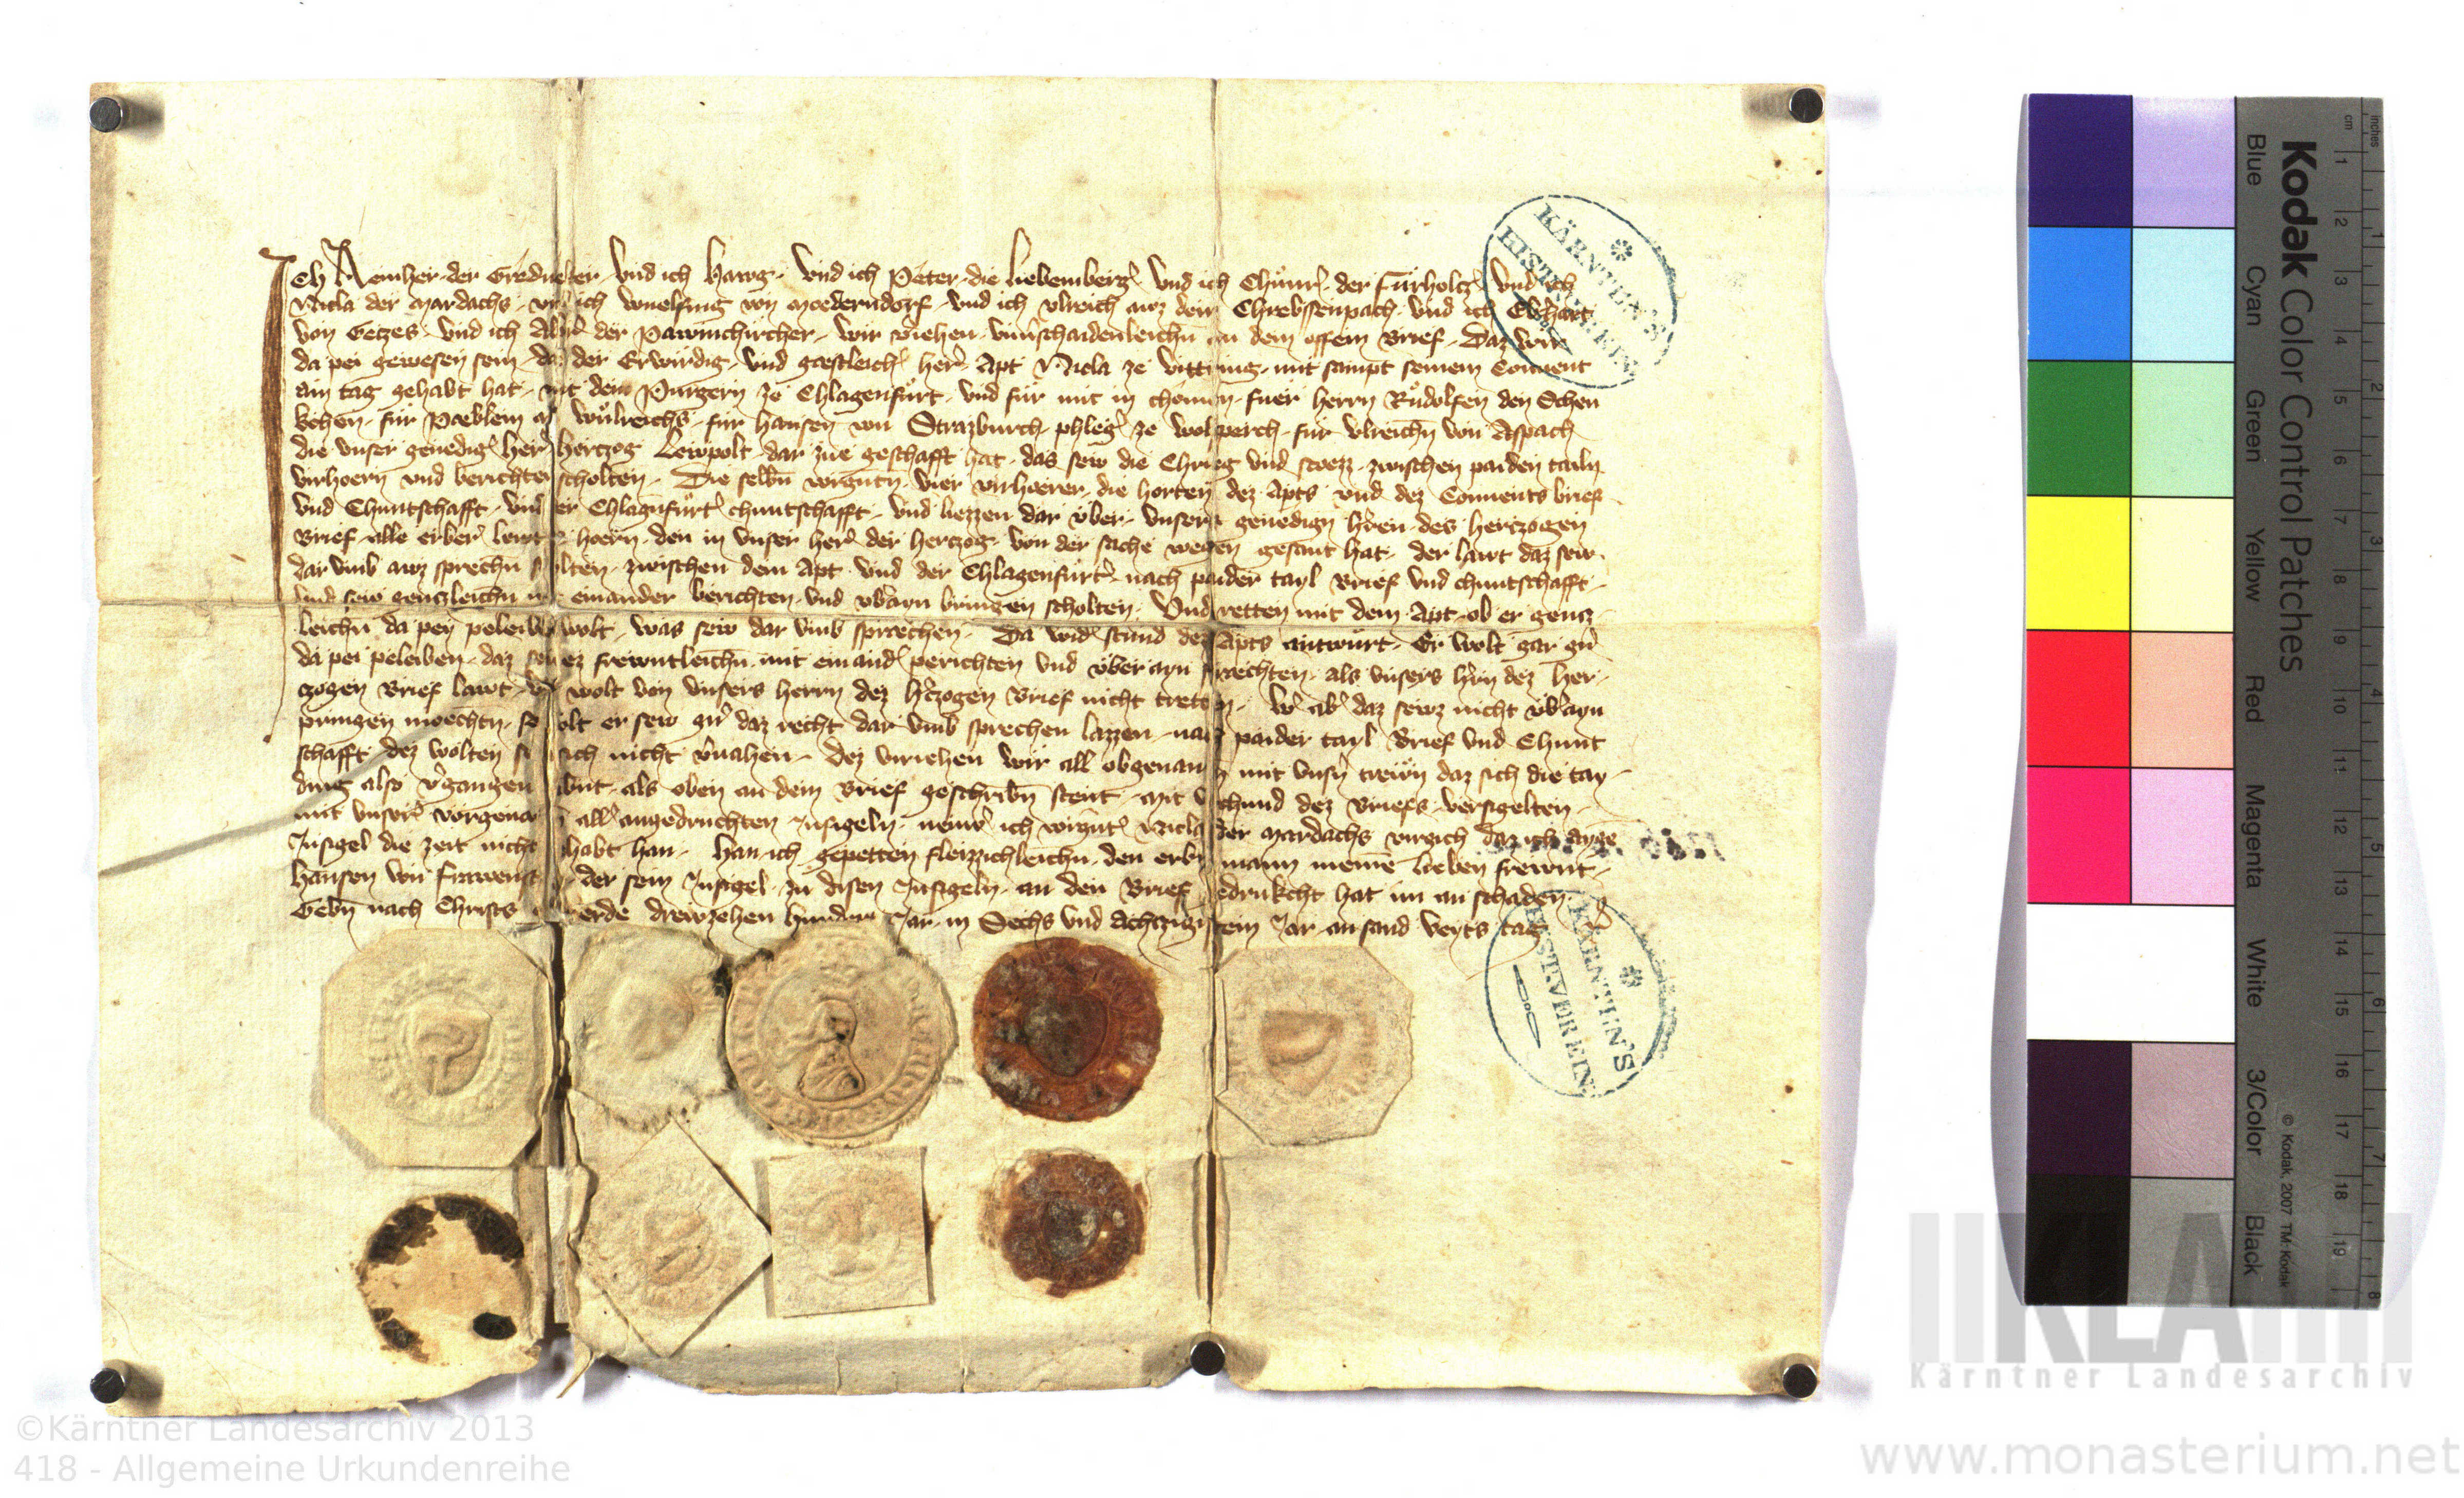 Ich Reinher der Gredneker vnd ich Hawg vnd ich Peter die Liebemberg̉ vnd ich Chůnr̉ der Fürholtz̉ vnd ich
Nicla der Mardachs vnd ich Wuelfing von Moederndorf vnd ich Vlreich awz dem Chrebssenpach vnd ich Ekhart
von Getzes vnd ich der Pawmchircher wir vnuerschaidenleichn an dem offem Brief Daz wir
da pei gewesen sein da der Erwirdig vnd gaestleich̉ her̉ Apt Nicla ze Vittring mit sampt seinem Conuent
ain tag gehabt hat mit dem Purgern ze Chlagenfurt vnd für mit in chomen fuer herrn Rudolfen den Schen
kchen für für Hansen von Strazburch phleg̉ ze für Vlreichn von Aspach
die vnser genedig̉ her̉ hertzog Lewpolt dar zue geschafft hat das sew die Chrieg vnd stoezz zwischen paiden tailn
virhoern vnd berichten scholten Die selbn vier virhoerer die horten dez Apts vnd dez Conuents brief
vnd Chuntschafft vnd der Chlagnfürt̉ chuntschafft vnd liezzen dar über vnsers genedign hr̉en des hertzogen
Brief alle erber̉ lewt hoern den in vnser her̉ der hertzog von der sache wegen gesant hat der lawt daz sew
dar vmb awz sprechn scholten zwischen dem Apt vnd der Chlagenfürt̉ nach paider tayl Brief vnd chuntschafft
vnd sew genczleichn mit einander berichten vnd vb̉ayn bringen scholten Vnd retten mit dem Apt ob er gencz
leichn da pey peleiben wolt was sew dar vmb sprechen Da wid̉ stund dez Apts antwurt Er wolt gar gn̉
da pei peleiben daz sew ez frewntleichn mit einand̉ perichten vnd über ayn praechten als vnsers hr̉n dez Her
czogen Brief lawt wolt von vnsers herrn dez hr̉czogen Brief nicht treten W̉ ab̉ daz sewz nicht vb̉ayn
pringen moechtn so wolt er sew gn̉ daz recht dar vmb sprechen lazzen nach paider tayl Brief vnd Chunt
schafft dez wolten si sich nicht Dez wir all obgenanten mit vnsn̉ trewn daz sich die tay
ding also v̉gangen als oben an dem Brief geschribn stent Mit vrchund dez Briefs versigelten
mit vnser̉ vorgenanten all̉ angedruchten Insigeln ich Nicla der Mardachs daz ich aygen
Insigel die zeit nicht gehabt han Han ich gepetten fleizzichleichn den erbern mann meinen lieben frewnt
Hansen von der sein Insigel zu disen Insigeln an den Brief gedrukcht hat im an schaden
Gebn nach Christs gepuerde drewzehen hundert Jar in Sechs vnd Achtzigistem Jar an sand Veyts tag
KÄRNTEN'S
HIST. VEREIN
KÄRNTEN'S
HIST. VEREIN
Kodak Color Control Patches
Blue Cyan Green Yellow Red Magenta White 3/Color Black
© Kodak 2007 TM: Kodak
inches
1 2 3 4 5 6 7 8
cm
1 2 3 4 5 6 7 8 9 10 11 12 13 14 15 16 17 18 19
KLA
Kärntner Landesarchiv
©Kärntner Landesarchiv 2013
418 - Allgemeine Urkundenreihe
www.monasterium.net